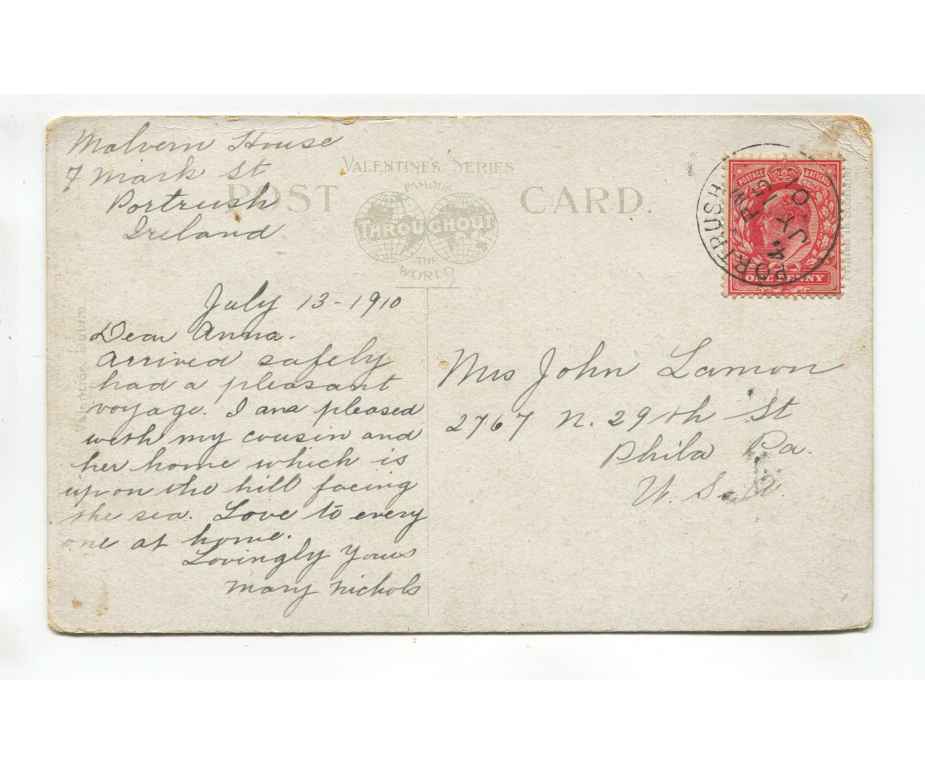 Malvern House
7 Mark St
Portrush
Ireland
VALENTINE'S SERIES
POST CARD.
FAMOUS
THROUGHOUT
THE
WORLD
PORTRUSH
5 15 PM
JY
10
POSTAGE
ONE PENNY
July 13 - 1910
Dear Anna.
Arrived safely
had a pleasant
voyage. I am pleased
with my cousin and
her home which is
up on the hill facing
the sea. Love to every
one at home.
Lovingly Yours
Mary Nichols
Mrs John Lamon
2767 N. 29th St
Phila Pa.
U. S. A.